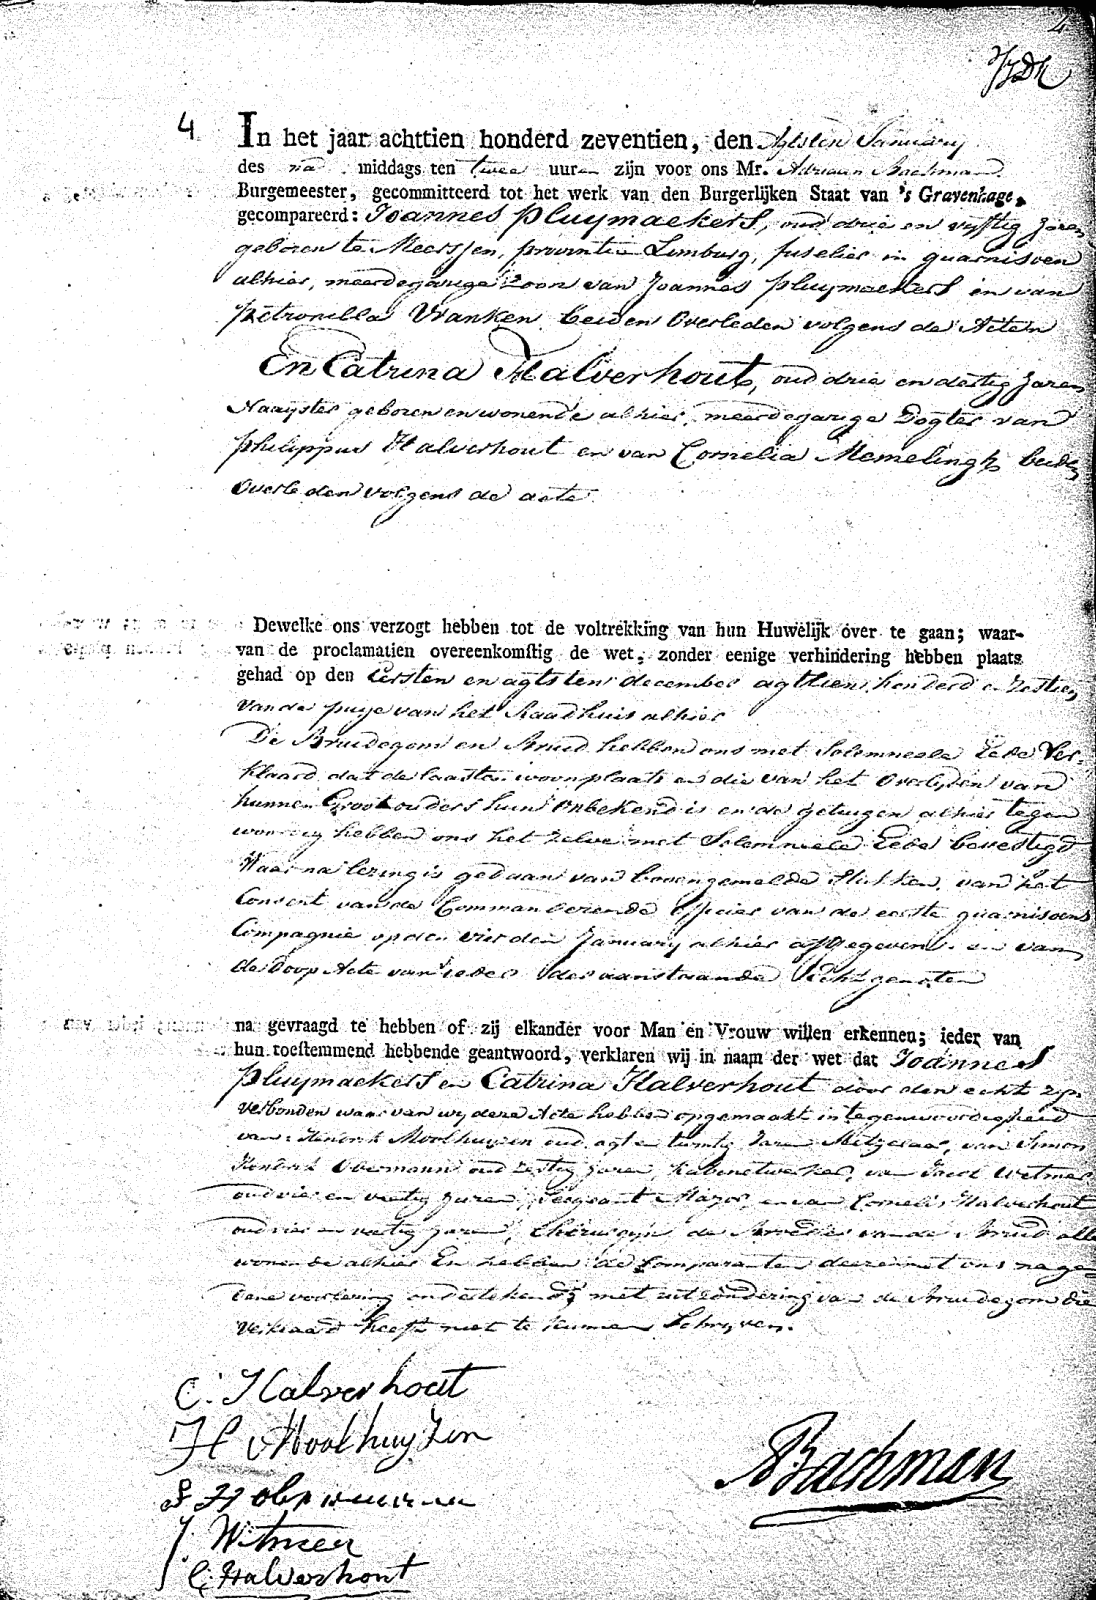 4
In het jaar achttien honderd zeventien, den Agtsten January
des na middags ten twee uuren zijn voor ons Mr. Adriaan Bachman
Burgemeester, gecommitteerd tot het werk van den Burgerlijken Staat van 's Gravenhage,
gecompareerd: Joannes Pluymaekers, oud drie en vyftig Jaren
geboren te Meerssen, provintie Limburg, fuselier in guarnisoen
alhier, meerdejarige Zoon van Joannes Pluymaekers en van
Petronella Vranken beiden Overleden volgens de Acten
En Catrina Halverhout, oud drie en dertig Jaren
Naayster geboren en wonende alhier, meerdejarige Dogter van
Philippus Halverhout en van Cornelia Memelingh beide
Overleden volgens de acte
Dewelke ons verzogt hebben tot de voltrekking van hun Huwelijk over te gaan; waar-
van de proclamatien overeenkomstig de wet, zonder eenige verhindering hebben plaats
gehad op den Eersten en agtsten december agttien honderd en Zestien
van de puye van het Raadhuis alhier
De Bruidegom en Bruid hebben ons met Solemneele Eede Ver-
klaard dat de laatste woonplaats en die van het Overlyden van
hunne Grootouders hun Onbekend is en de getuigen alhier tegen
woordig hebben ons het zelve met Solemneele Eede bevestigd
Waar na lezing is gedaan van bovengemelde Stukken, van het
Consent van de Commanderende Officier van de eerste guarnisoens
Compagnie op den vierden January alhier afgegeven en van
de Doop Acte van ieder der aanstaande Echtgenoten
na gevraagd te hebben of zij elkander voor Man en Vrouw willen erkennen; ieder van
hun toestemmend hebbende geantwoord, verklaren wij in naam der wet dat Joannes
Pluymaekers en Catrina Halverhout door den echt zyn
verbonden waar van wy deze Acte hebben opgemaakt in tegenwoordigheid
van Hendrik Moolhuyzen oud agt en twintig Jaren Metzelaar, van Simon
Hendrik Obermann oud zestig jaren Kabinetwerker, van Jacob Witmer
oud vier en veertig Jaren, Sergeant Major, en van Cornelis Halverhout
oud vier en veertig Jaren, Chirurgyn de Broeder van de Bruid alle
wonende alhier En hebben de Comparanten deze met ons na ge-
dane voorlezing ondertekend, met uitzondering van de Bruidegom die
verklaard heeft niet te kunnen Schryven.
C. Halverhout
H Moolhuyzen
S H Obermann
J. Witmeer
C. Halverhout
ABachman